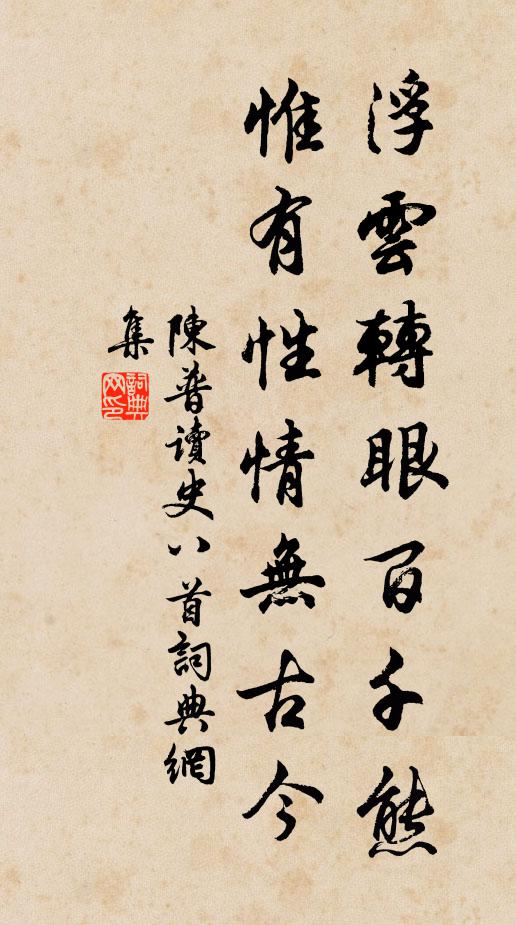 浮雲轉眼百千態
惟有性情無古今
陳普讀史八首詞典網
集
詞典
网印